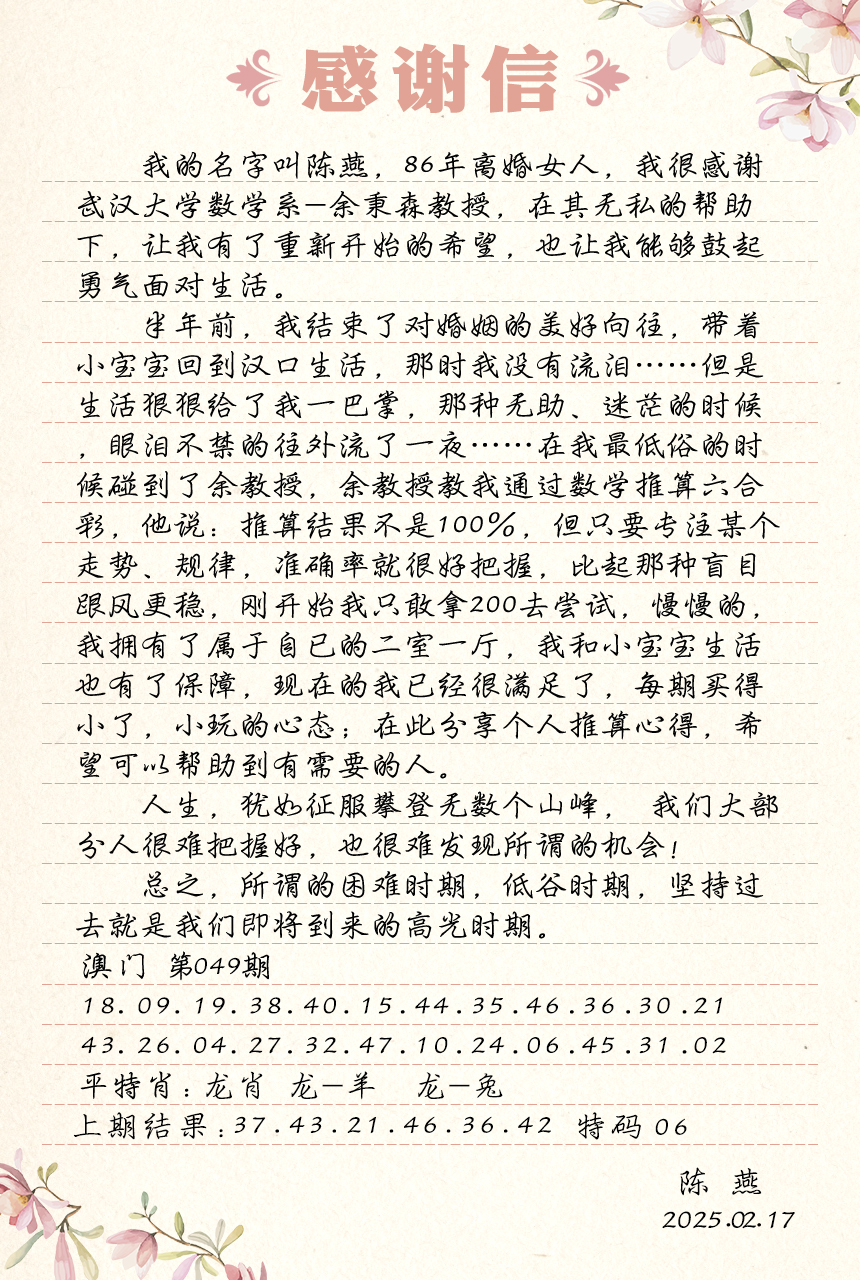 感谢信
我的名字叫陈燕，86年离婚女人，我很感谢
武汉大学数学系—余秉森教授，在其无私的帮助
下，让我有了重新开始的希望，也让我能够鼓起
勇气面对生活。
半年前，我结束了对婚姻的美好向往，带着
小宝宝回到汉口生活，那时我没有流泪……但是
生活狠狠给了我一巴掌，那种无助、迷茫的时候
，眼泪不禁的往外流了一夜……在我最低俗的时
候碰到了余教授，余教授教我通过数学推算六合
彩，他说：推算结果不是100%，但只要专注某个
走势、规律，准确率就很好把握，比起那种盲目
跟风更稳，刚开始我只敢拿200去尝试，慢慢的，
我拥有了属于自已的二室一厅，我和小宝宝生活
也有了保障，现在的我已经很满足了，每期买得
小了，小玩的心态；在此分享个人推算心得，希
望可以帮助到有需要的人。
人生，犹如征服攀登无数个山峰， 我们大部
分人很难把握好，也很难发现所谓的机会！
总之，所谓的困难时期，低谷时期，坚持过
去就是我们即将到来的高光时期。
澳门 第049期
18.09.19.38.40.15.44.35.46.36.30.21
43.26.04.27.32.47.10.24.06.45.31.02
平特肖：龙肖 龙—羊 龙—兔
上期结果：37.43.21.46.36.42 特码 06
陈 燕
2025.02.17